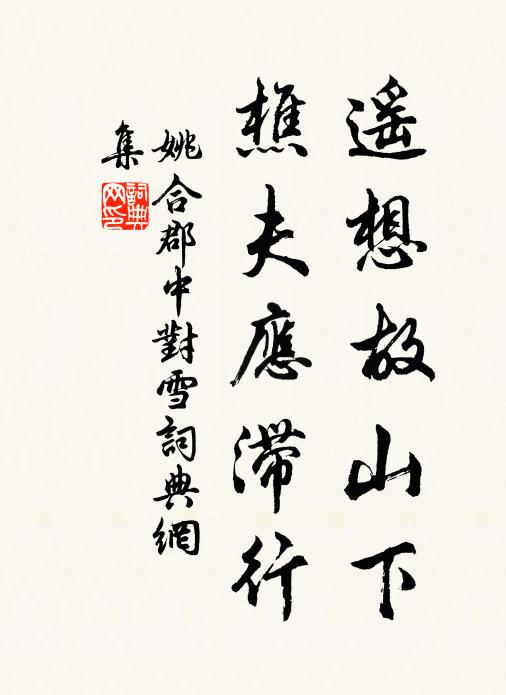 遥想故山下
樵夫應滯行
姚合郡中對雪詞典網
集
詞典
网印